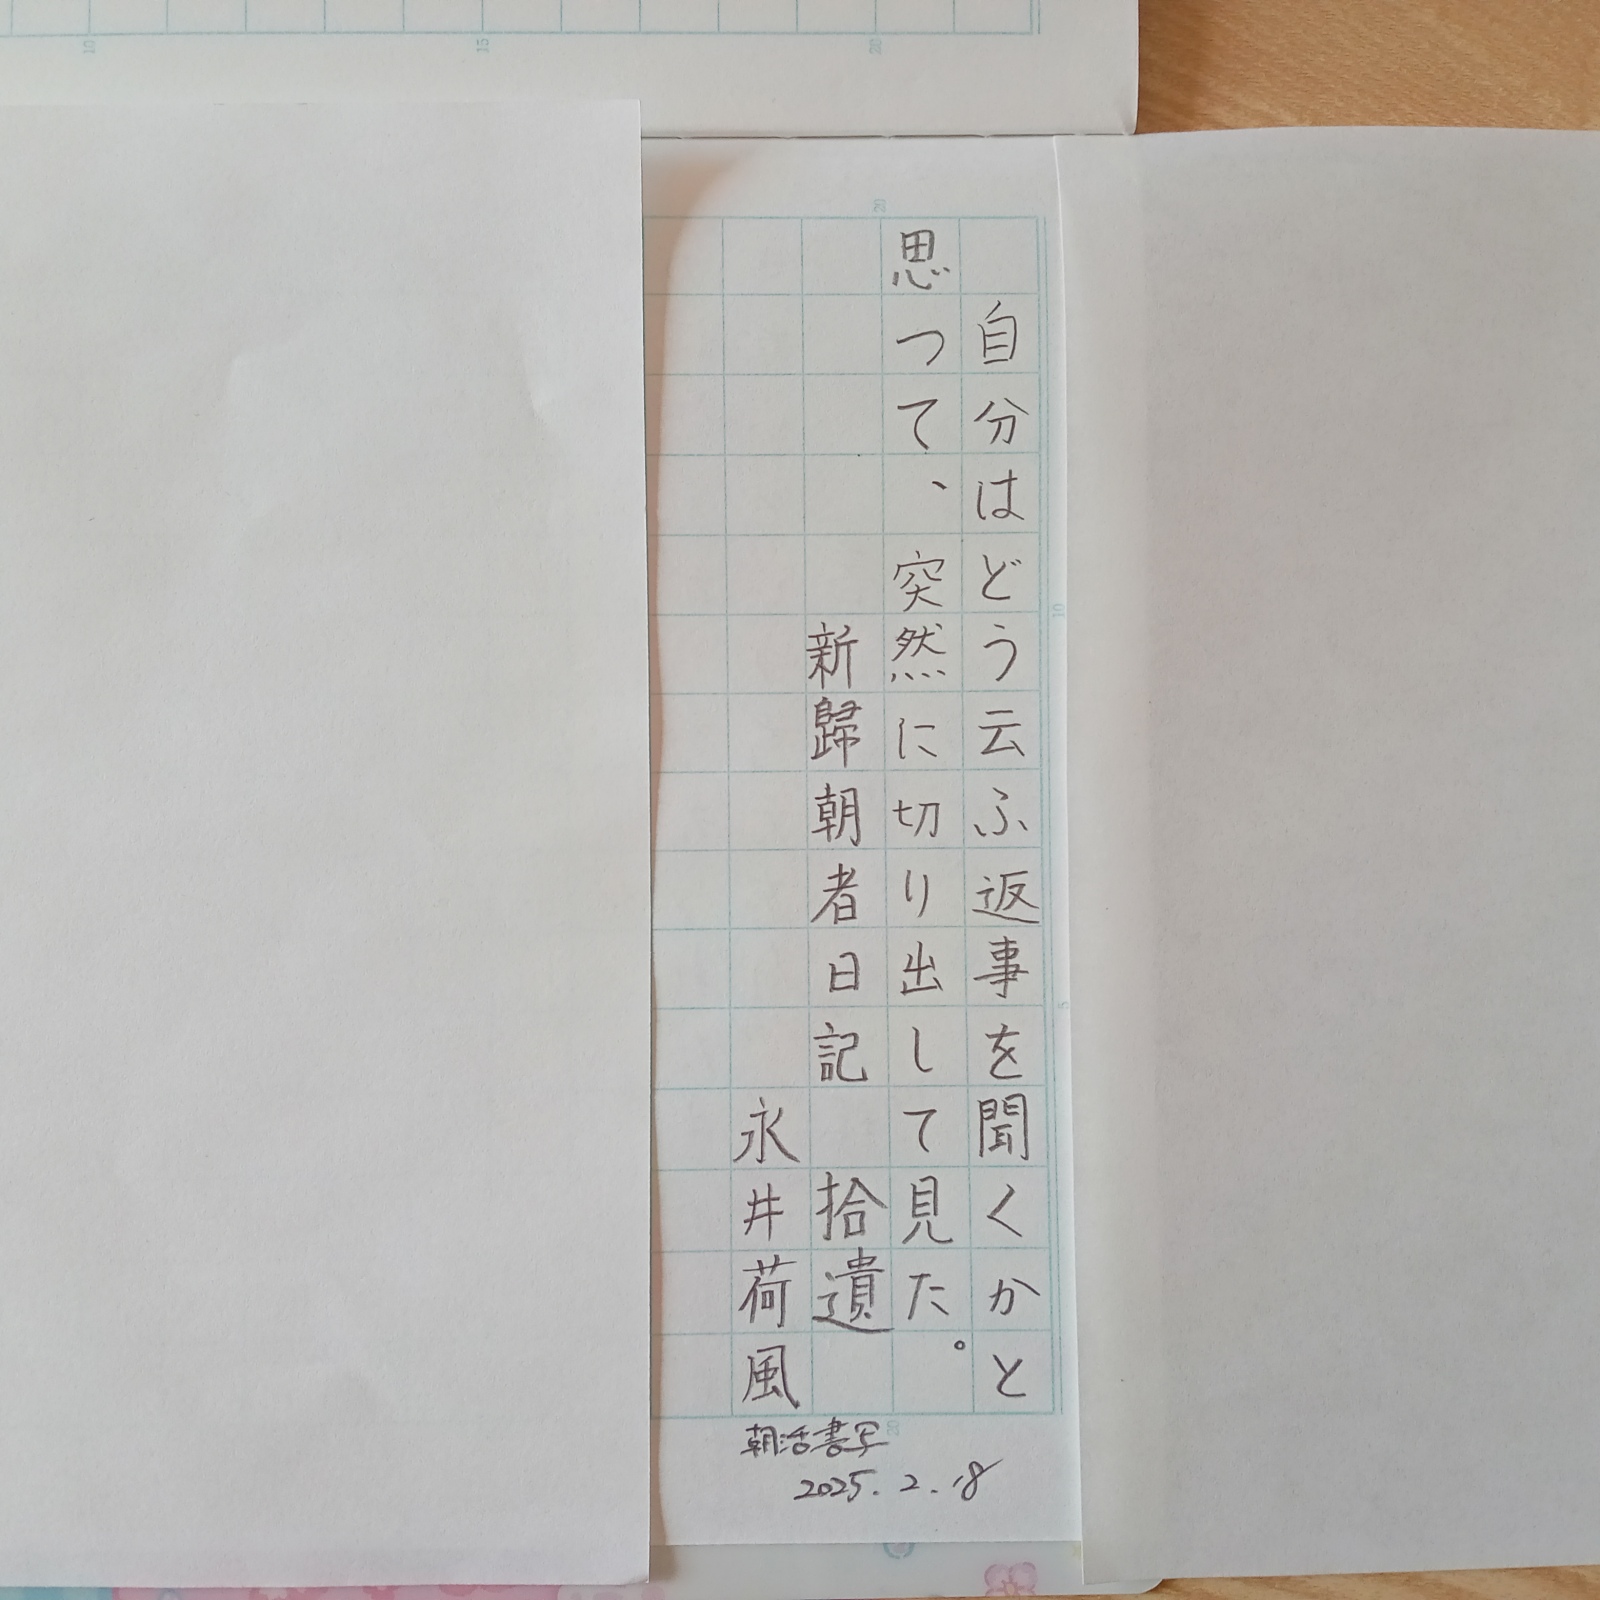 自分はどう云ふ返事を聞くかと
思つて、突然に切り出して見た。
新歸朝者日記 拾遺
永井荷風
朝活書写
2025.2.18
10
15
20
20
10
5
20